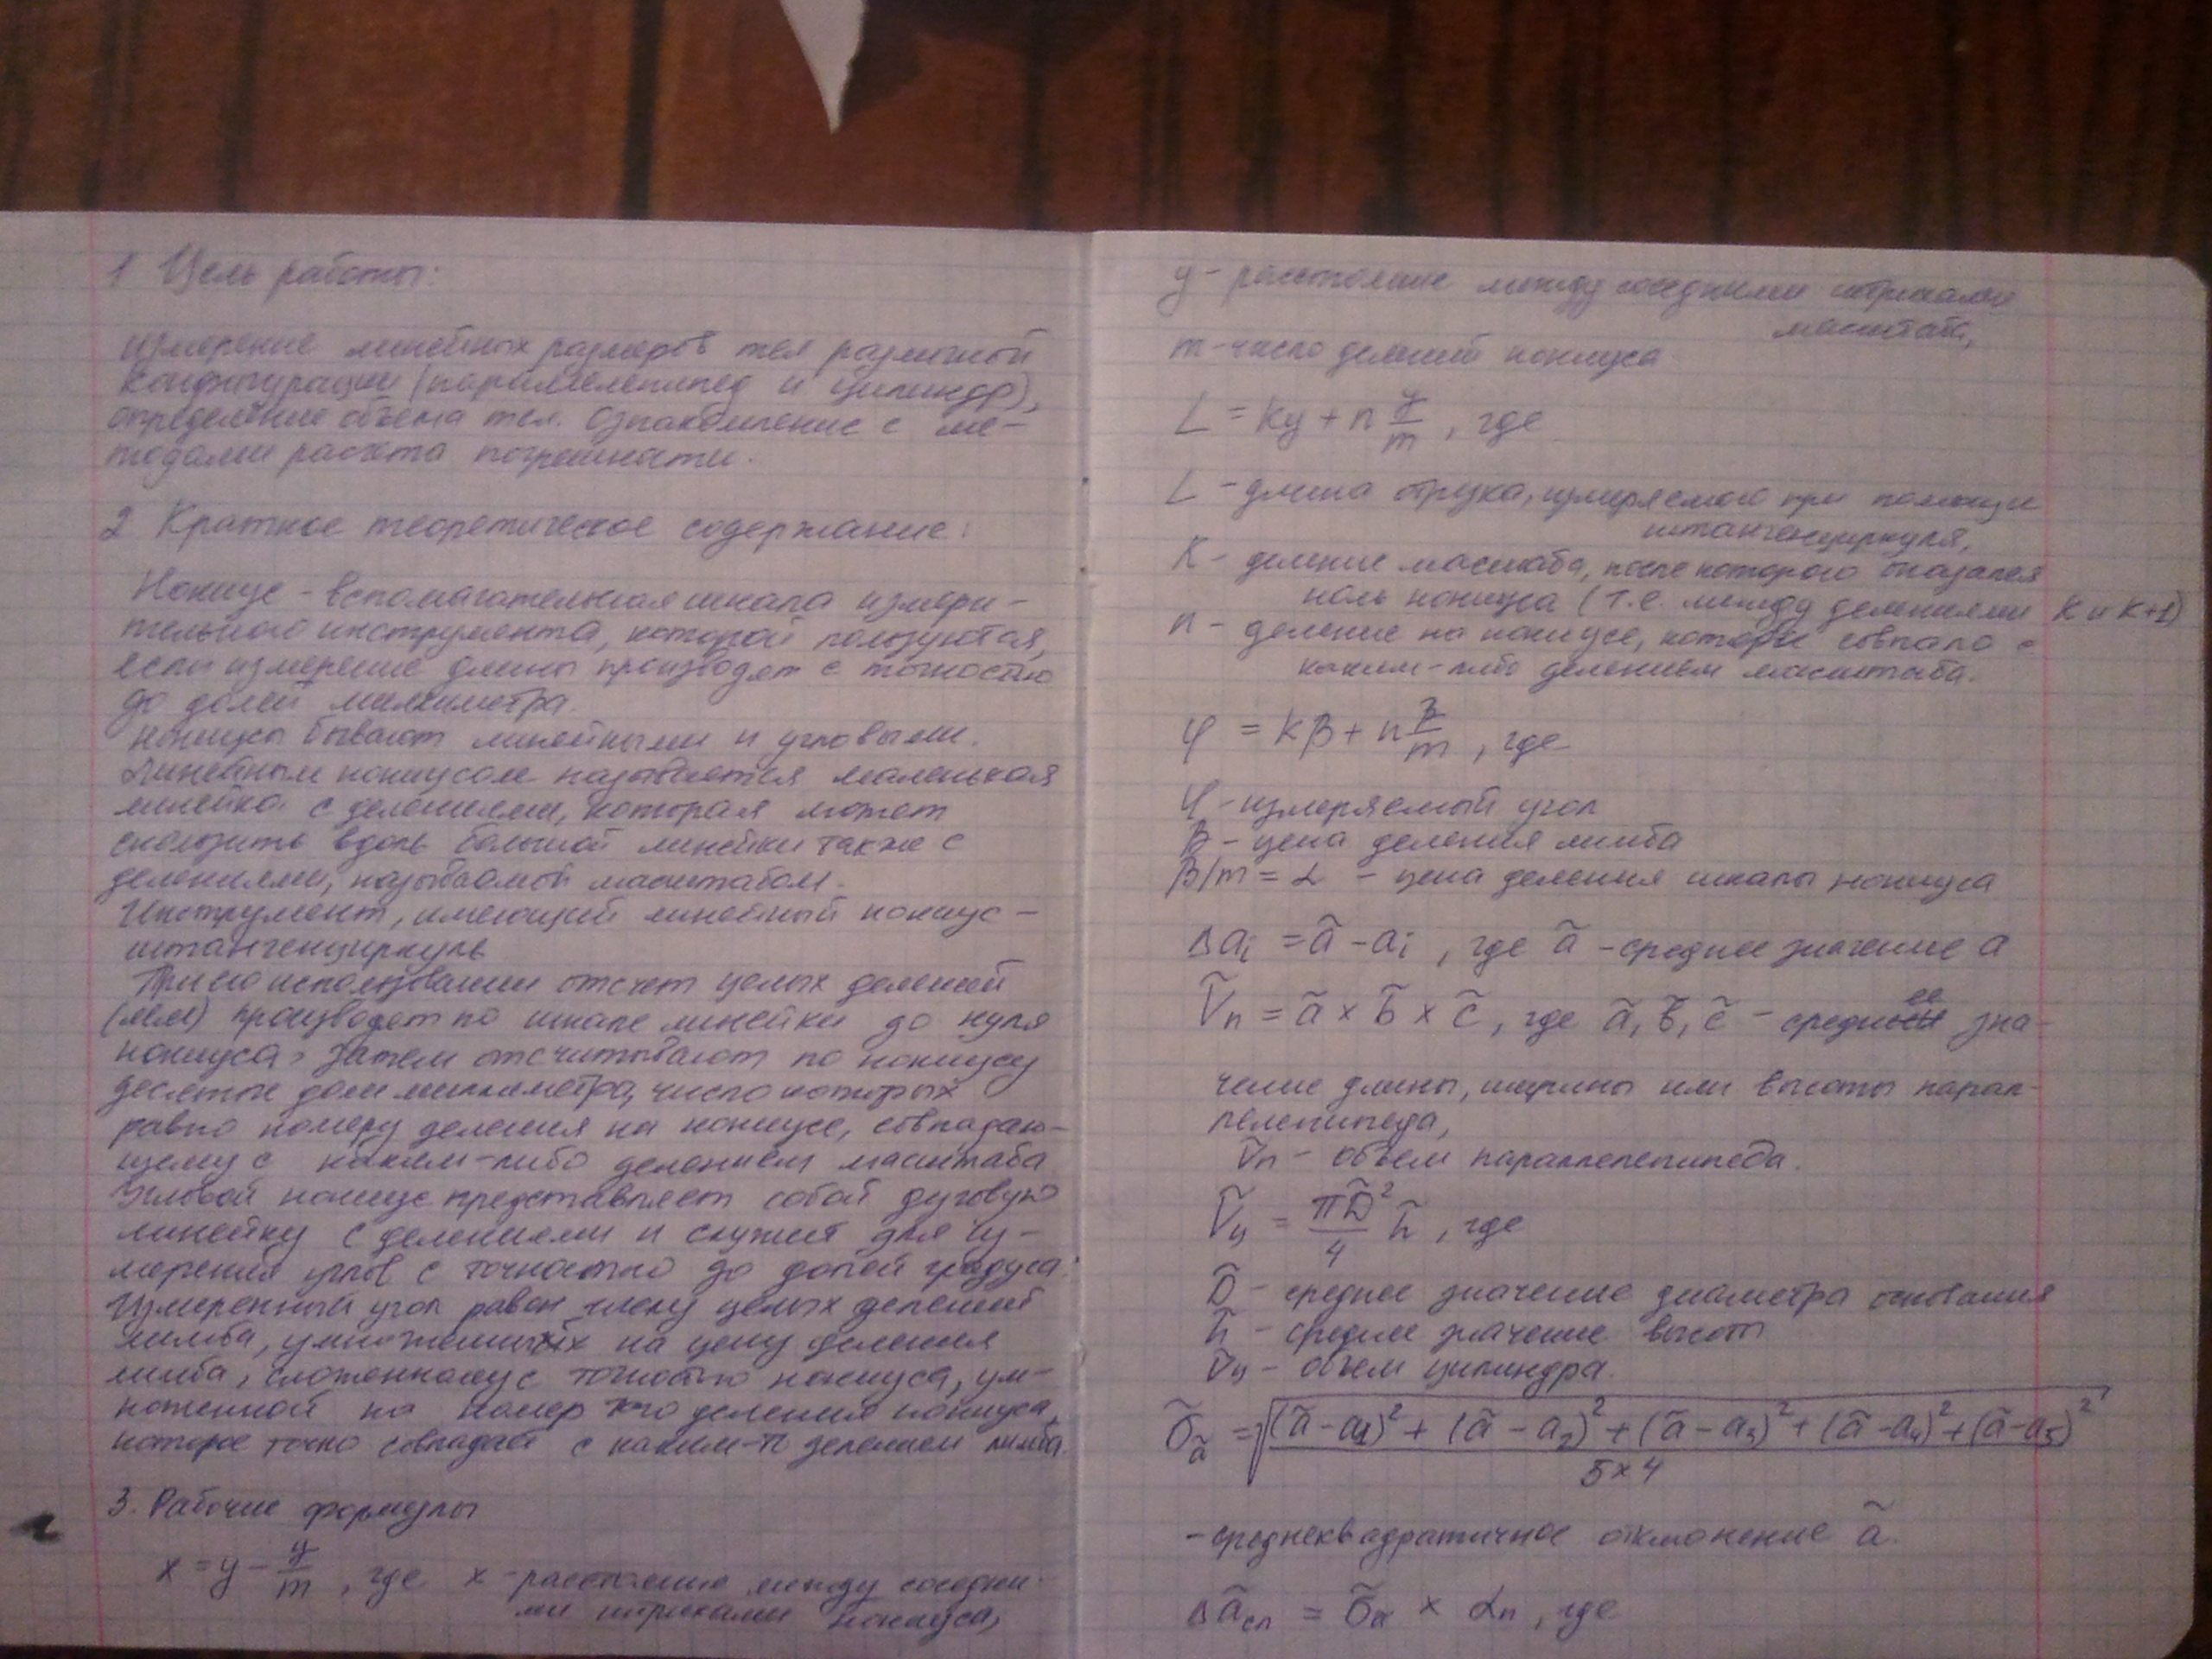 1 Цель работы:
измерение линейных размеров тел различной
конфигурации (параллелепипед и цилиндр),
определение объема тел. Ознакомление с ме-
тодами расчета погрешности.
2 Краткое теоретическое содержание:
Нониус - вспомагательная шкала измери-
тельного инструмента, которой пользуются,
если измерение длины производят с точностью
до долей миллиметра.
Нониусы бывают линейными и угловыми.
Линейным нониусом называется маленькая
линейка с делениями, которая может
скользить вдоль большой линейки также с
делениями, называемой масштабом.
Инструмент, имеющий линейный нониус -
штангенциркуль
При его использовании отсчет целых делений
(мм) производят по шкале линейки до нуля
нониуса, затем отсчитывают по нониусу
десятые доли миллиметра, число которых
равно номеру деления на нониусе, совпадаю-
щему с каким-либо делением масштаба
Угловой нониус представляет собой дуговую
линейку с делениями и служит для из-
мерения углов с точностью до долей градуса.
Измеренный угол равен числу целых делений
лимба, умноженных на цену деления
лимба, сложенному с точностью нониуса, ум-
ноженной на номер того деления нониуса,
которое точно совпадает с каким-то делением лимба.
3. Рабочие формулы
x = y - y/m, где x - расстояние между соседни-
ми штрихами нониуса,
y - расстояние между соседними штрихами
масштаба,
m - число делений нониуса
L = ky + n y/m, где
L - длина отрезка, измеряемого при помощи
штангенциркуля,
K - деление масштаба, после которого оказался
ноль нониуса (т.е. между делениями K и K+1)
n - деление на нониусе, которое совпало с
каким-либо делением масштаба.
φ = kβ + n β/m, где
φ - измеряемый угол
β - цена деления лимба
β/m = α - цена деления шкалы нониуса
Δaᵢ = ã - aᵢ, где ã - среднее значение a
Ṽп = ã × b̃ × c̃, где ã, b̃, c̃ - среднее зна-
чение длины, ширины или высоты парал-
лелепипеда,
Ṽп - объем параллелепипеда.
Ṽц = πD̃²/4 h̃, где
D̃ - среднее значение диаметра основания
h̃ - среднее значение высоты
Ṽц - объем цилиндра.
σ̃ã = √((ã - a₁)² + (ã - a₂)² + (ã - a₃)² + (ã - a₄)² + (ã - a₅)²)/(5×4)
- среднеквадратичное отклонение ã.
Δãсл = σ̃α × αn, где